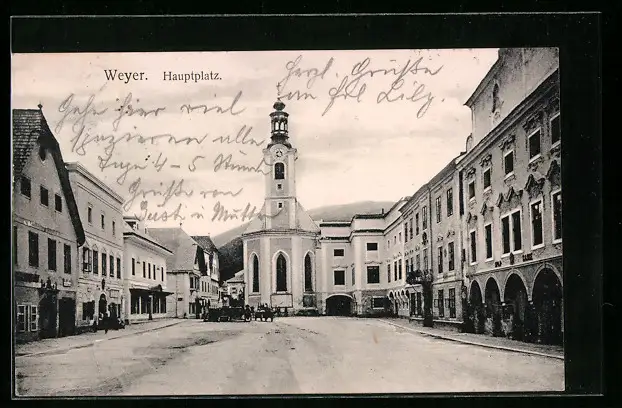 Weyer. Hauptplatz.
Herzl. Grüße
an Frl Lily.
Gehe hier viel
spazieren alle
Tage 4-5 Stund
Grüße von
Gust. u Mutt